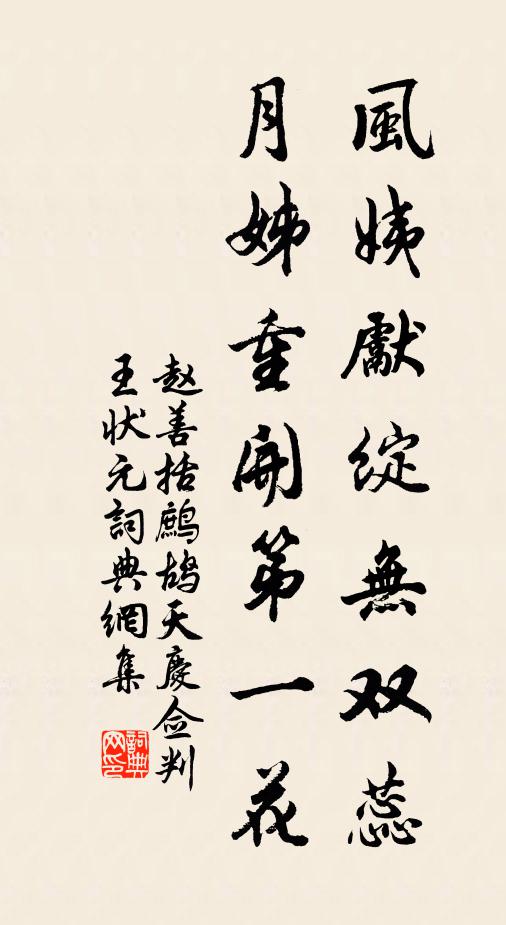 風姨獻綻無双蕊
月姊重開第一花
赵善括鷓鴣天慶佥判
王状元詞典網集
詞典网印